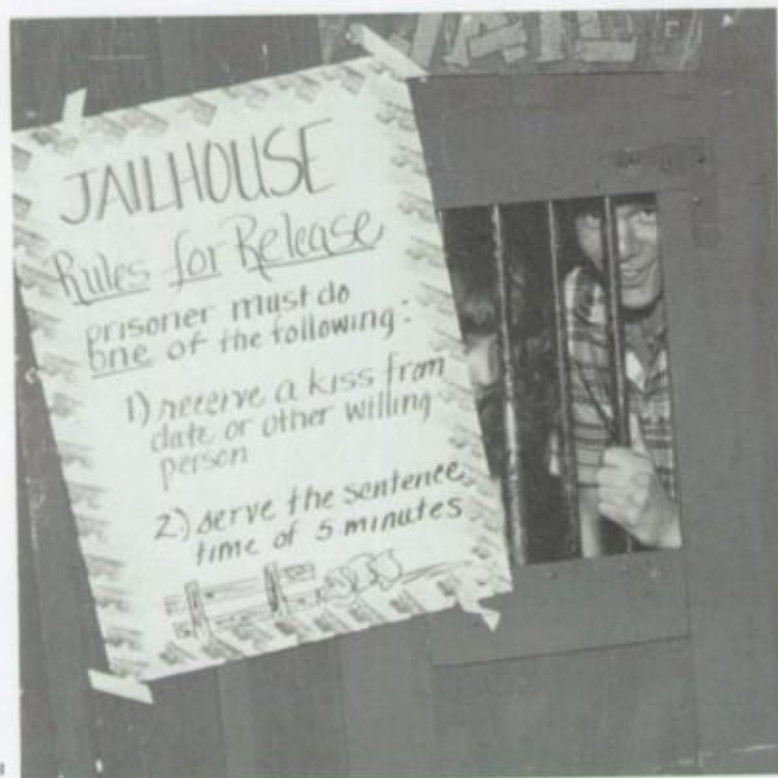 JAIL
JAILHOUSE
Rules for Release
prisoner must do
one of the following:
1) receive a kiss from
date or other willing
person
2) serve the sentence
time of 5 minutes